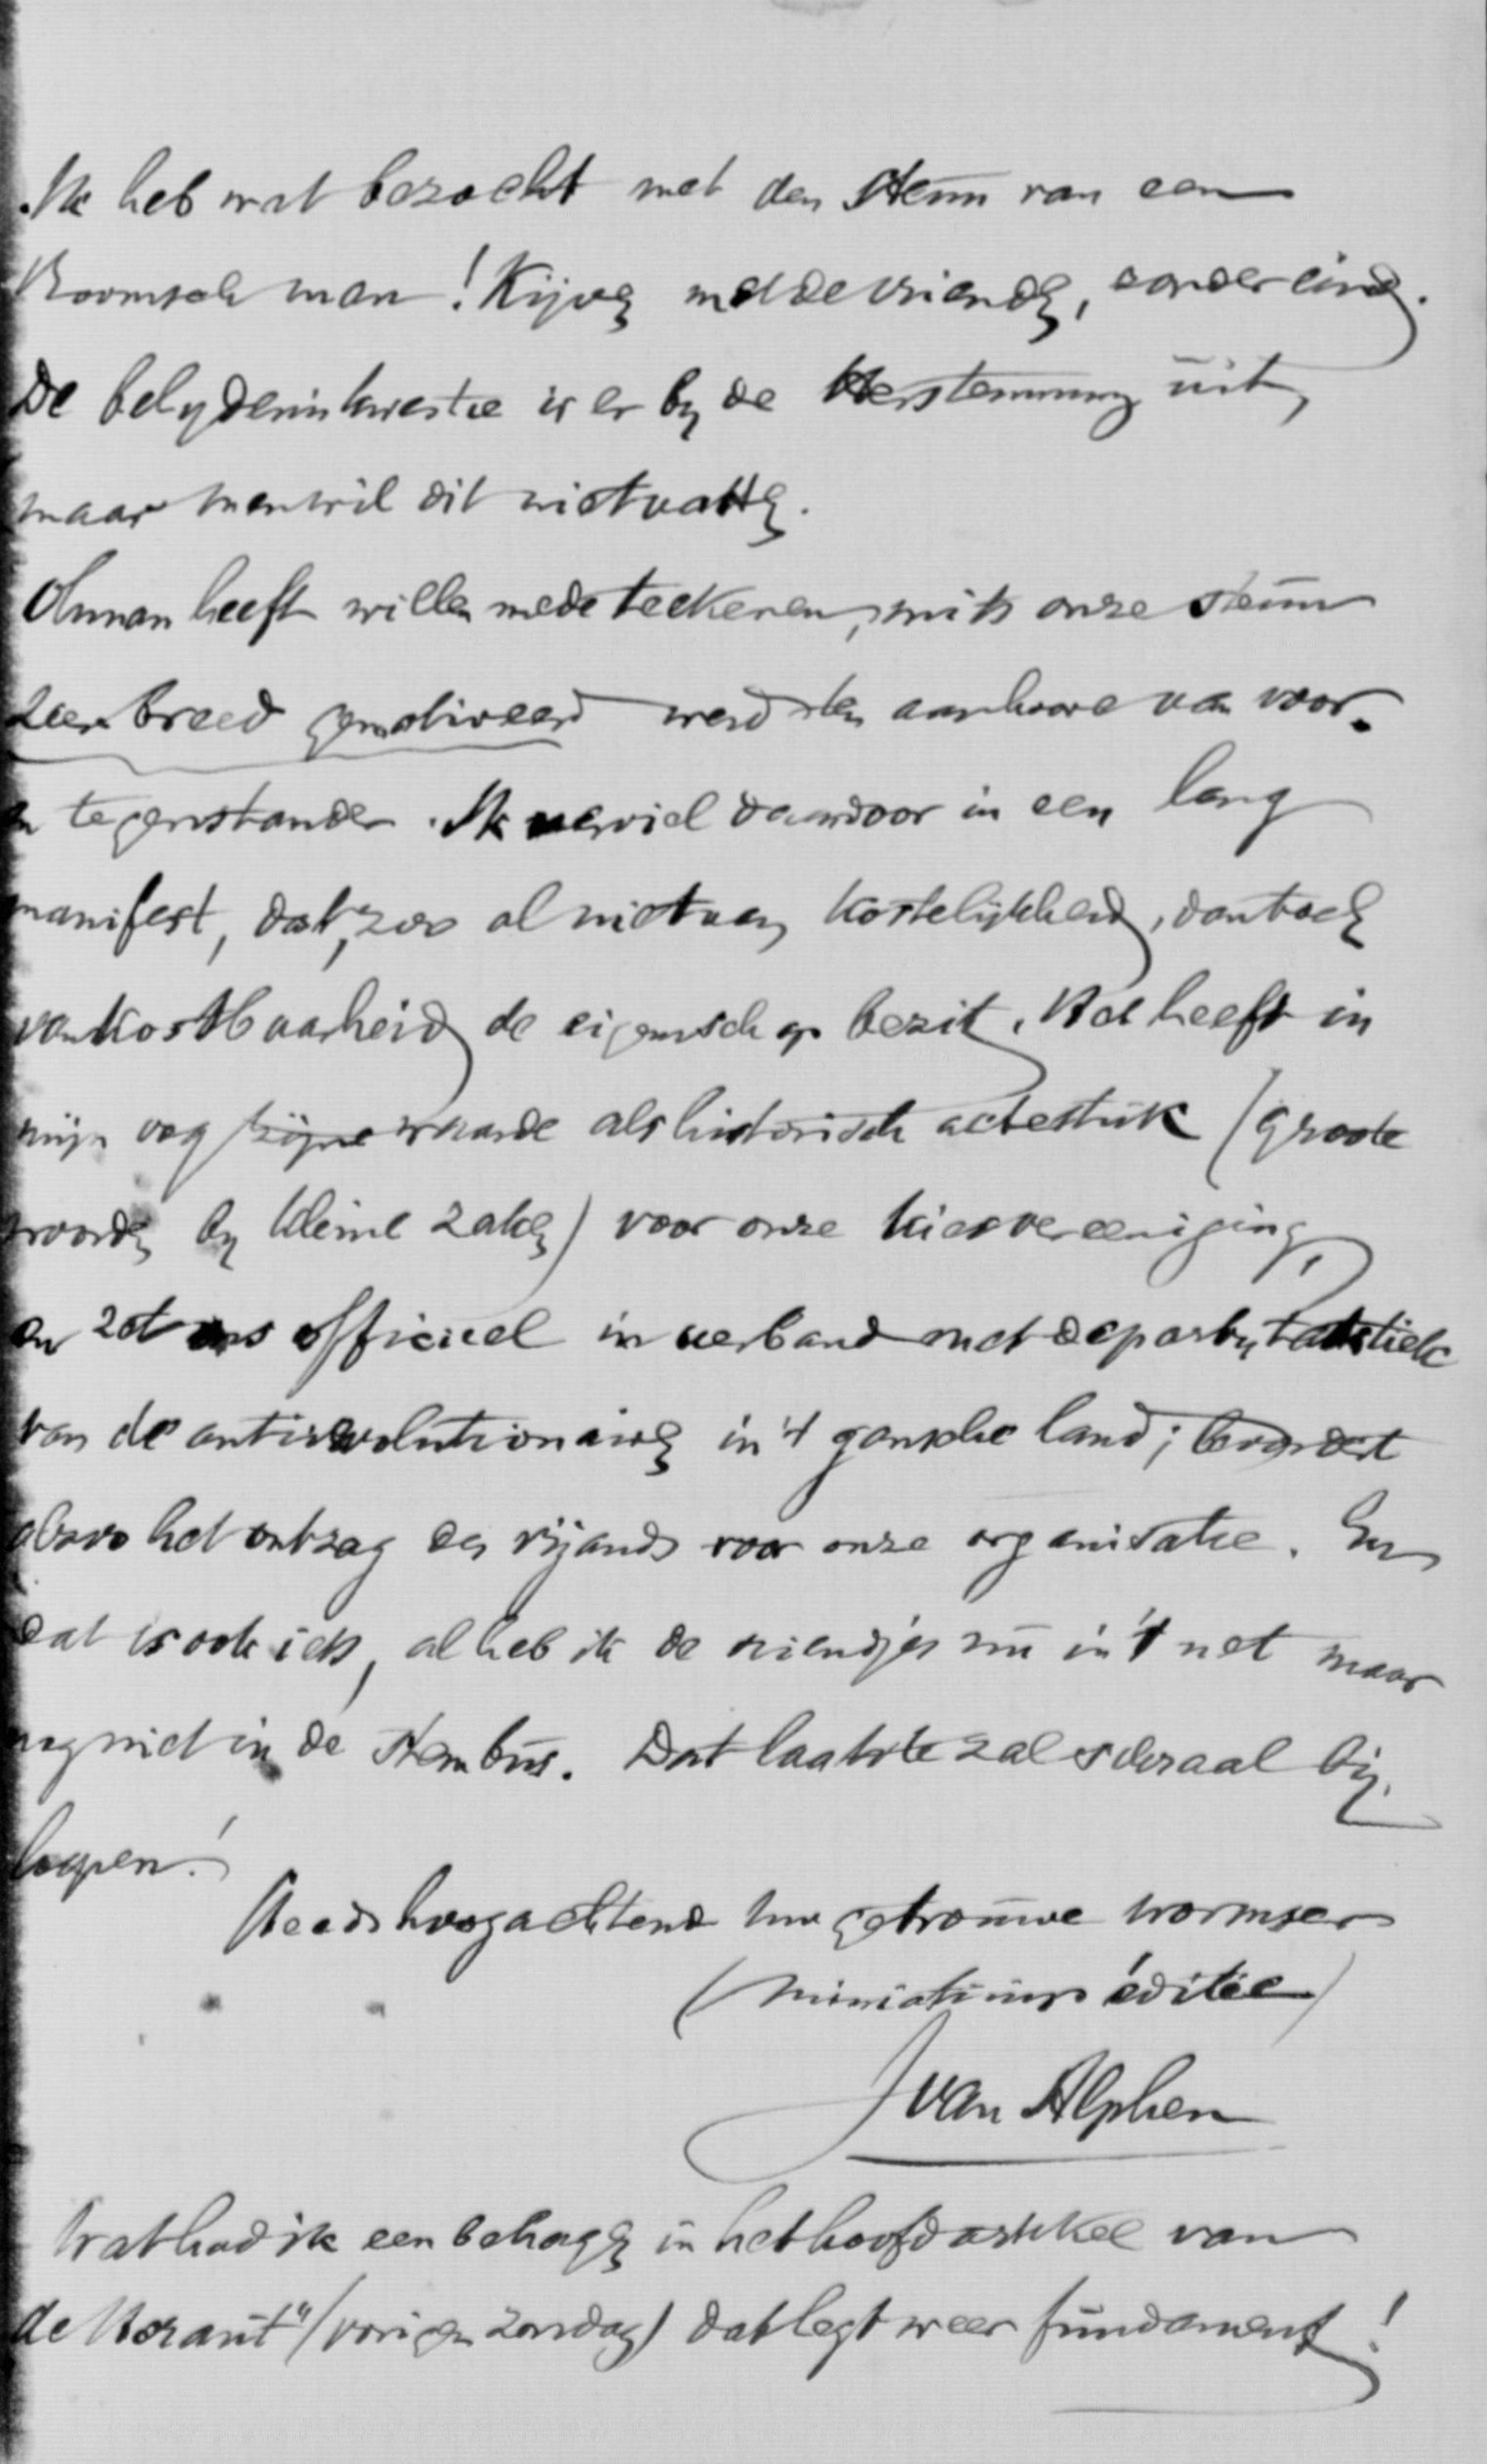 Ik heb wat bezocht met den steun van een
Roomsch man! Kijven met de vrienden, zonder eind.
De belydeniskwestie is er by de Herstemming uit,
maar men wil dit niet vatten.
Ohman heeft willen mede teekenen, mits onze steun
zeer breed gemotiveerd werd ten aanhoore van voor-
en tegenstander. Ik verviel daardoor in een lang
manifest, dat, zoo al niet van kostelijkheid, dan toch
van kostbaarheid de eigenschap bezit. Het heeft in
mijn oog waarde als historisch actestuk (groote
woorden by kleine zaken) voor onze kiesvereeniging,
en zet ons officieel in verband met de party taktiek
van de antirevolutionairen in 't gansche land; bevordert
alzoo het ontzag des vijands voor onze organisatie. En
dat is ook iets, al heb ik de vriendjes nu in 't net maar
nog niet in de stembus. Dat laatste zal bij-
loopen!
Steeds hoogachtend Uw getrouwe Wormser
(miniatuur editie)
J van Alphen
Wat had ik een behagen in het hoofdartikel van
de Heraut" (vorigen Zondag) dat legt weer fundament!